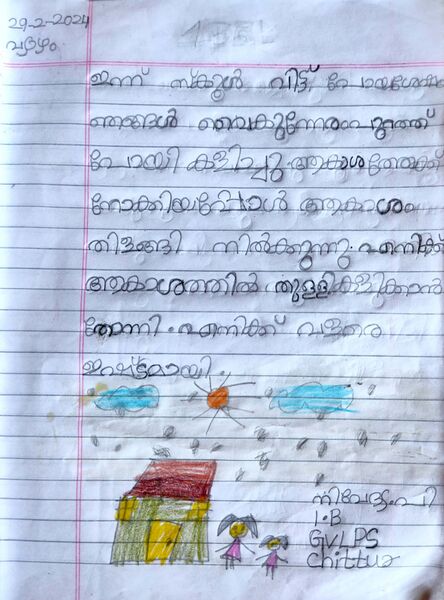 29-2-2024
വ്യാഴം
ഇന്ന് സ്കൂൾ വിട്ട് പോയശേഷം
ഞങ്ങൾ വൈകുന്നേരം പുറത്ത്
പോയി കളിച്ചു. ആകാശത്തേക്ക്
നോക്കിയപ്പോൾ ആകാശം
തിളങ്ങി നിൽക്കുന്നു. എനിക്ക്
ആകാശത്തിൽ തുള്ളികളിക്കാൻ
തോന്നി. എനിക്ക് വളരെ
ഇഷ്ടമായി.
നിവേദ്യ. പി
1.B
GVLPS
Chittur